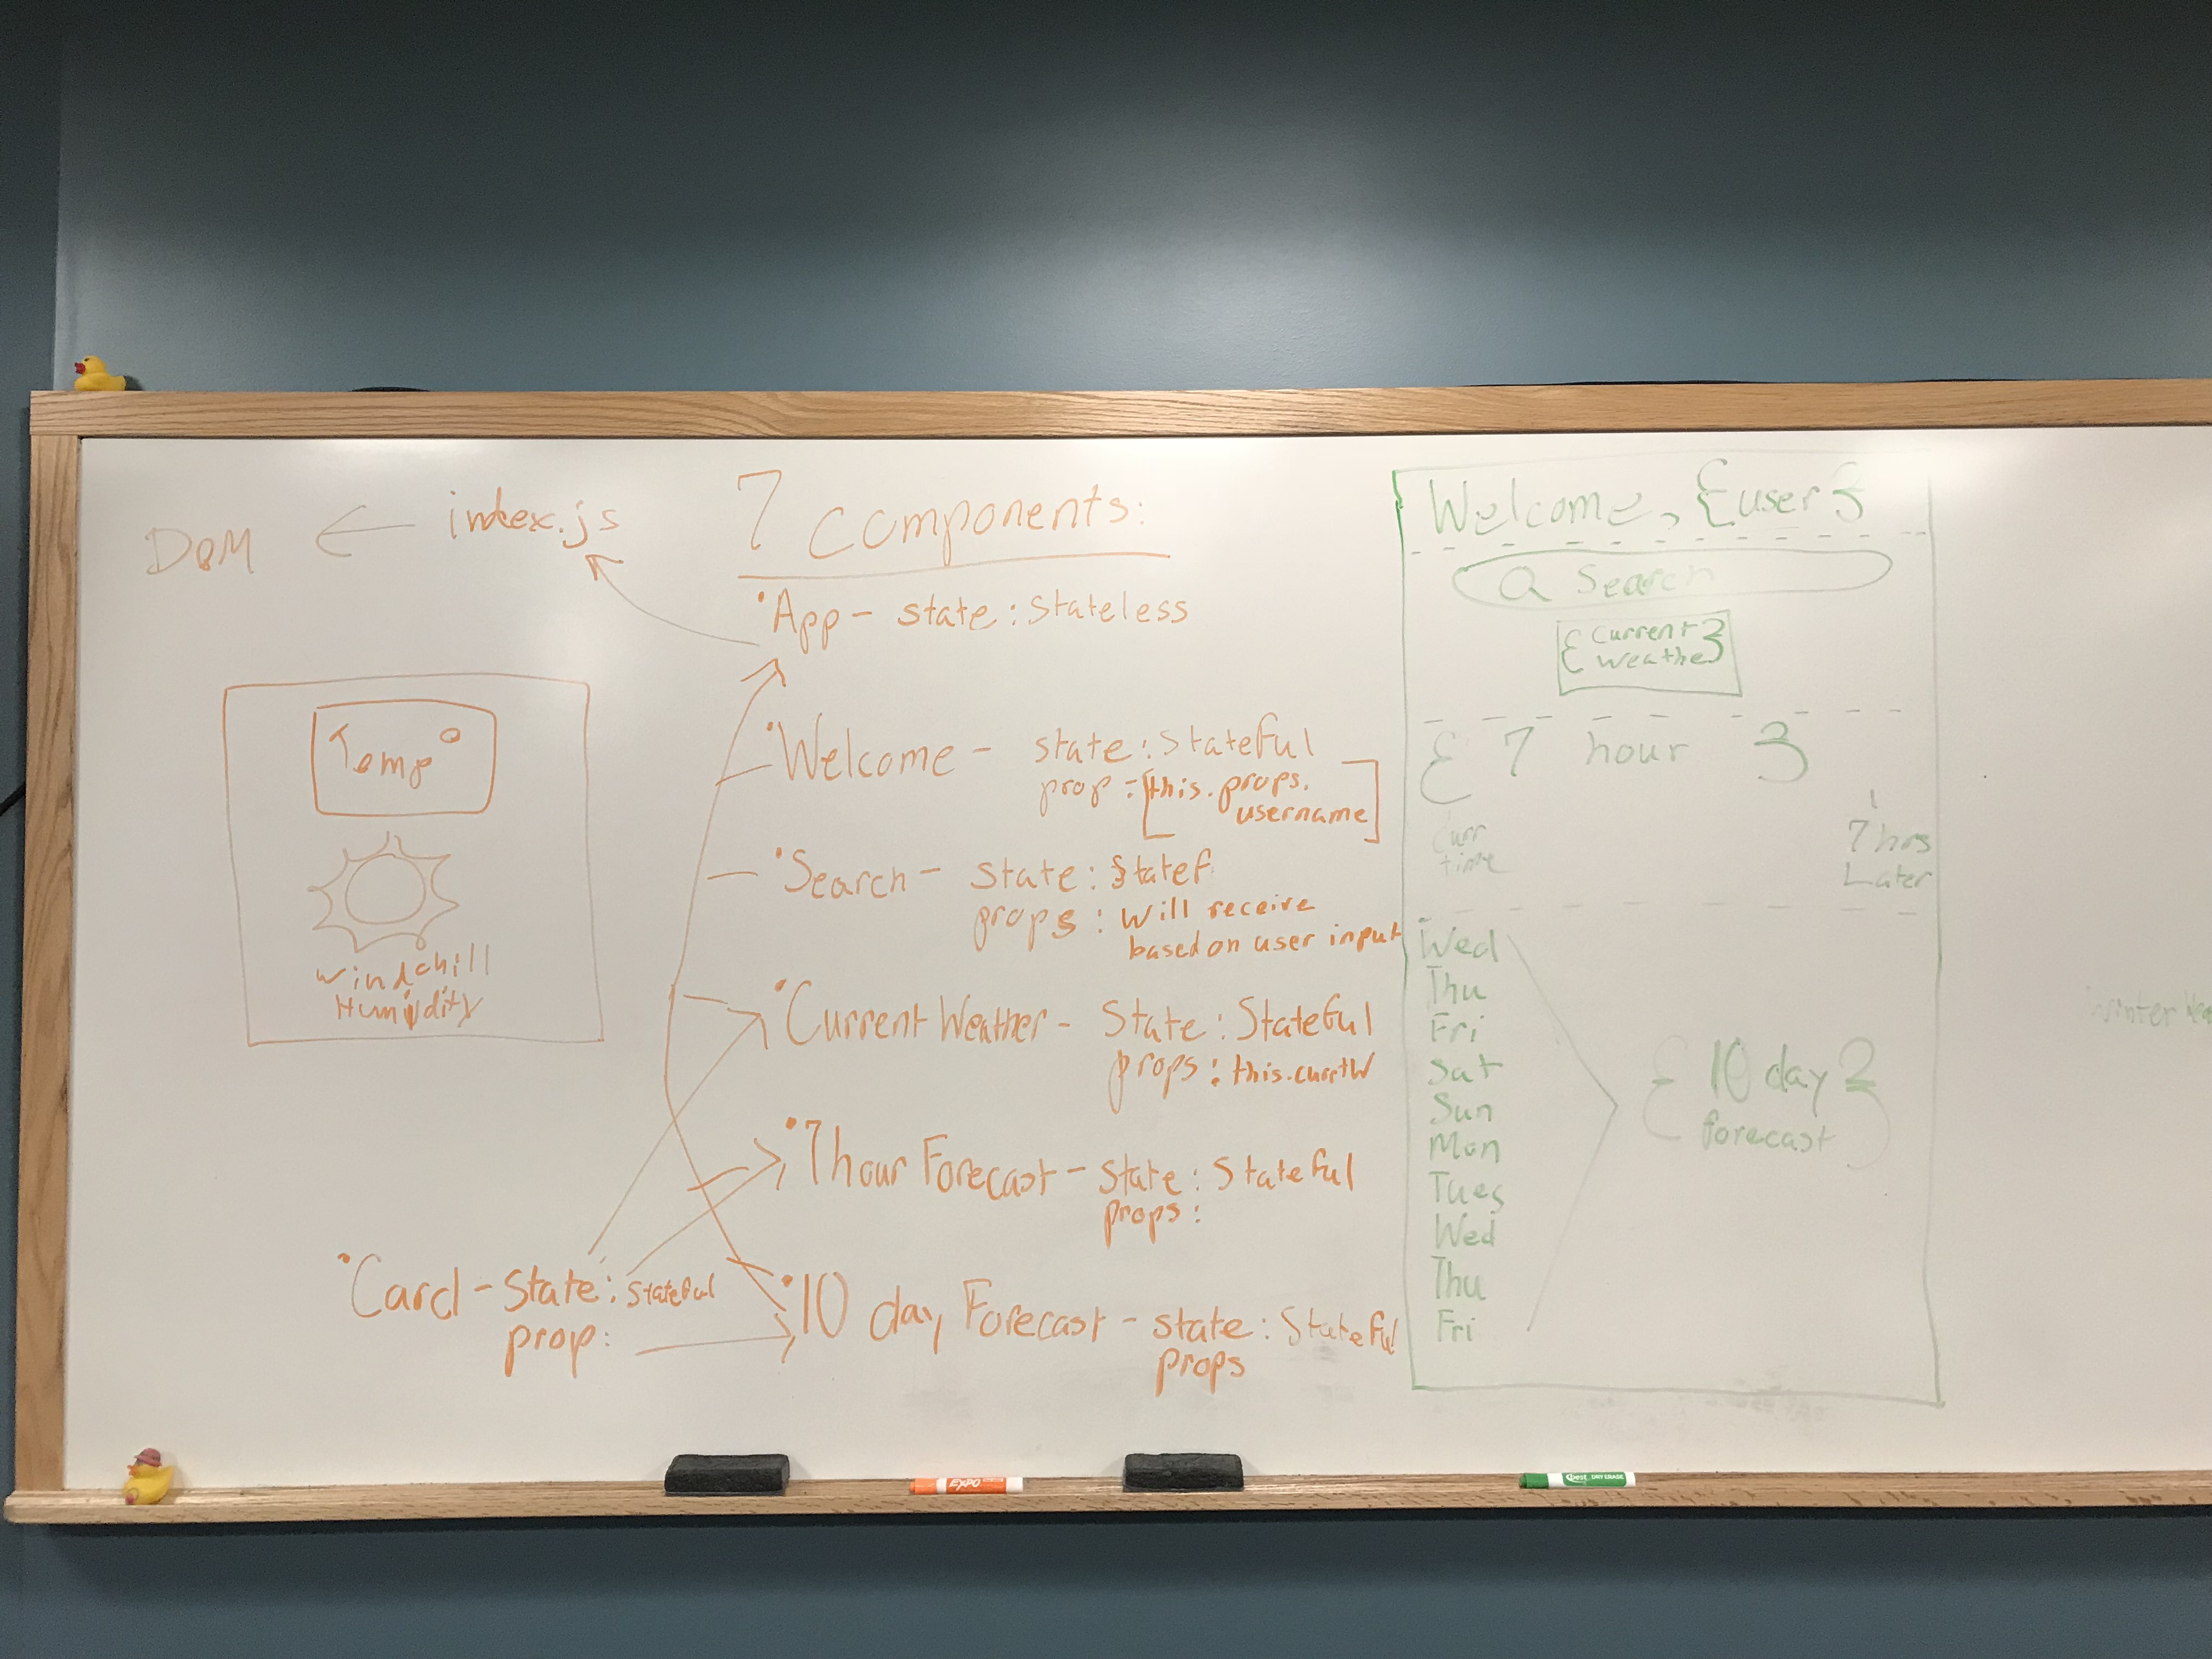 DOM ← index.js
7 Components:
•App - state: Stateless
•Welcome - state: Stateful
prop = [this.props.
username]
•Search - state: Statef
props: will receive
based on user input
•Current Weather - State: Stateful
props: this.currtW
•7hour Forecast - state: Stateful
props:
•10 day Forecast - state: Stateful
props
•Card - State: Stateful
prop:
Temp°
windchill
Humidity
Welcome, {user}
Search
{Current
Weathe}
{7 hour}
Curr
time
7 hrs
Later
Wed
Thu
Fri
Sat
Sun
Mon
Tues
Wed
Thu
Fri
{10 day}
forecast
Winter
EXPO
DRY ERASE